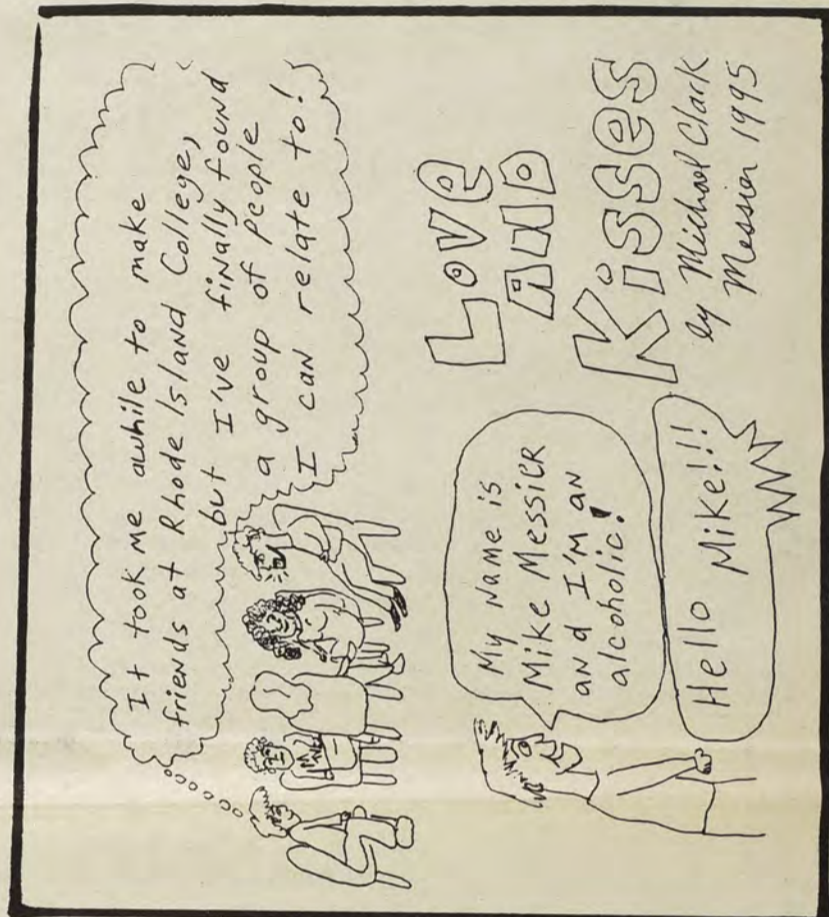 It took me awhile to make
friends at Rhode Island College,
but I've finally found
a group of people
I can relate to!
Love
AND
Kisses
by Michael Clark
Messier 1995
My name is
Mike Messier
and I'm an
alcoholic!
Hello Mike!!!